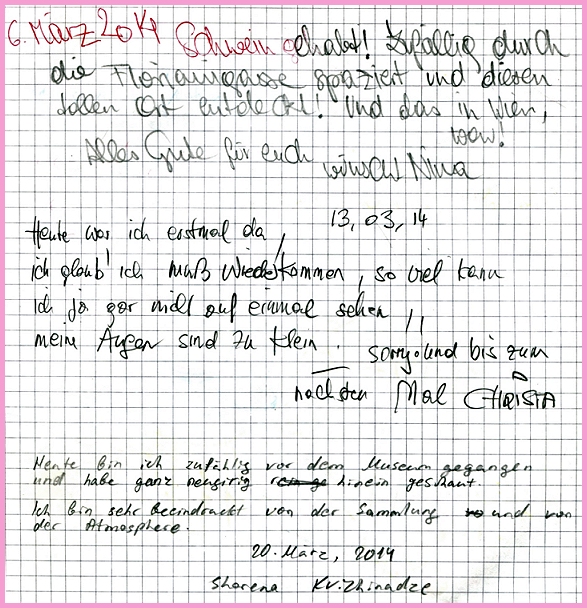 6. März 2014 Schwein gehabt! Zufällig durch
die Florianigasse spaziert und diesen
tollen Ort entdeckt! Und das in Wien,
wow!
Alles Gute für euch wünscht Nina
13,03,14
Heute war ich erstmal da,
ich glaub' ich muß Wiederkommen, so viel kann
ich ja gar nicht auf einmal sehen
meine Augen sind zu klein. sorry. und bis zum
nächsten Mal CHRISTA
Heute bin ich zufählig vor dem Museum gegangen
und habe ganz neugirig hinein geschaut.
Ich bin sehr beeindruckt von der Sammlung und von
der Atmosphere.
20. März, 2014
Shorena Kvizhinadze